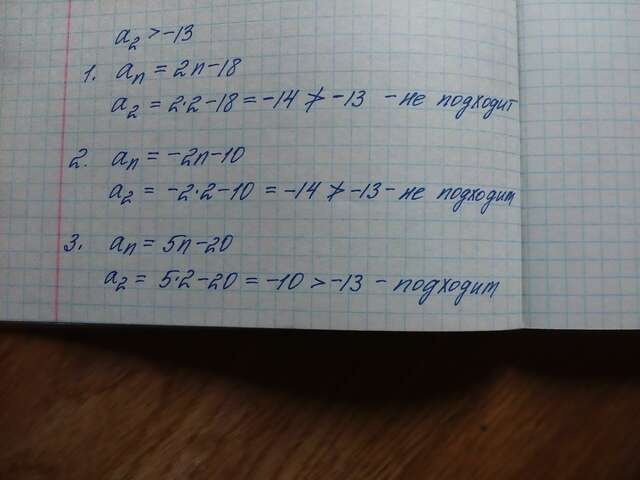 a₂ > -13
1. aₙ = 2n-18
a₂ = 2·2-18 = -14 ≯ -13 - не подходит
2. aₙ = -2n-10
a₂ = -2·2-10 = -14 ≯ -13 - не подходит
3. aₙ = 5n-20
a₂ = 5·2-20 = -10 > -13 - подходит